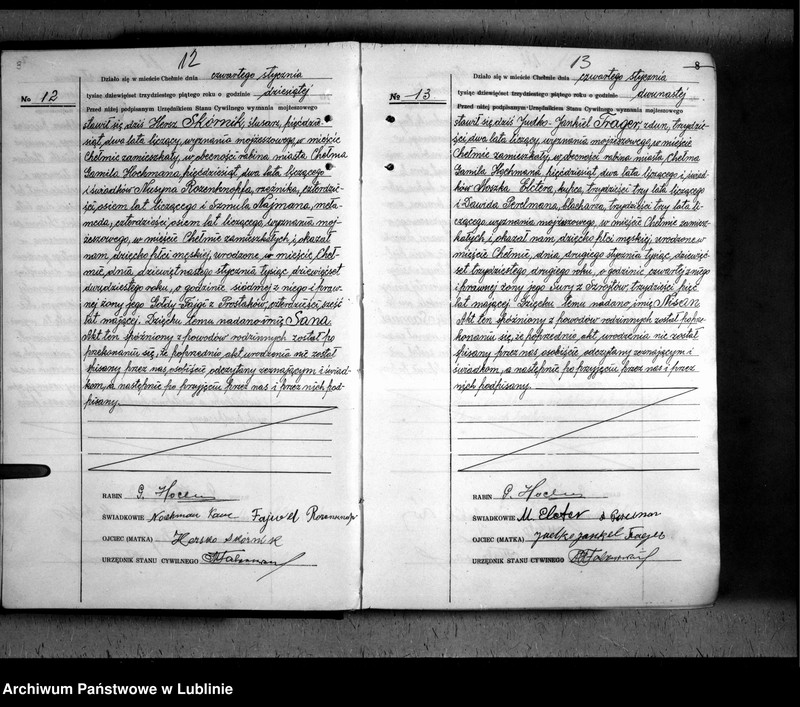 12
Działo się w mieście Chełmie dnia czwartego stycznia
tysiąc dziewięćset trzydziestego piątego roku o godzinie dziesiątej
No 12
Przed niżej podpisanym Urzędnikiem Stanu Cywilnego wyznania mojżeszowego
stawił się dziś Hersz Skórnik, ślusarz, pięćdzie-
siąt, dwa lata liczący, wyznania mojżeszowego, w mieście
Chełmie zamieszkały, w obecności rabina miasta Chełma
Gamila Hochmana, pięćdziesiąt, dwa lata liczącego
i świadków Nusyna Rozenknopfa, rzeźnika, czterdzie-
ści, osiem lat liczącego i Szmila Najmana, meła-
meda, czterdzieści, osiem lat liczącego, wyznania moj-
żeszowego, w mieście Chełmie zamieszkałych, i okazał
nam, dziecko płci męskiej, urodzone, w mieście, Cheł-
mie, dnia, dziewiętnastego stycznia tysiąc, dziewięćset
dwudziestego roku, o godzinie, siódmej z niego i praw-
nej żony jego Gołdy Fajgi z Prostaków, czterdzieści, sześć
lat mającej. Dziecku temu nadano imię Sana
Akt ten spóźniony z powodów rodzinnych został po
przekonaniu się, że poprzednio, akt urodzenia nie został
spisany przez nas, osobiście, odczytany zeznającym i świad-
kom, a następnie po przyjęciu przez nas i przez nich pod-
pisany.
RABIN G. Hochm
ŚWIADKOWIE Fajwel
OJCIEC (MATKA) Herszko Skórnik
URZĘDNIK STANU CYWILNEGO
13
8
Działo się w mieście Chełmie dnia czwartego stycznia
tysiąc dziewięćset trzydziestego piątego roku o godzinie dwunastej
No 13
Przed niżej podpisanym Urzędnikiem Stanu Cywilnego wyznania mojżeszowego
stawił się dziś Judko-Jankiel Trager, zdun, trzydzie-
ści, dwa lata liczący, wyznania mojżeszowego, w mieście
Chełmie zamieszkały, w obecności rabina miasta, Chełma
Gamila Hochmana, pięćdziesiąt, dwa lata liczącego i świad-
ków Moszka Elctera, kupca, trzydzieści trzy lata liczącego
i Dawida Perelmana, blacharza, trzydzieści trzy lata li-
czącego wyznania mojżeszowego, w mieście Chełmie zamiesz-
kałych, i okazał nam, dziecko płci męskiej, urodzone w
mieście Chełmie, dnia, drugiego stycznia tysiąc, dziewięć-
set trzydziestego, drugiego roku, o godzinie czwartej z niego
i prawnej żony jego Sury z trzydzieści pięć
lat mającej. Dziecku temu nadano, imię Nisen
Akt ten spóźniony z powodów rodzinnych został po prze-
konaniu się, że poprzednio, akt, urodzenia nie został
spisany przez nas, osobiście odczytany zeznającym i
świadkom, a następnie po przyjęciu przez nas i przez
nich podpisany.
RABIN G. Hochm
ŚWIADKOWIE M. Elcter
OJCIEC (MATKA) Judko Jankel Trager
URZĘDNIK STANU CYWILNEGO
Archiwum Państwowe w Lublinie